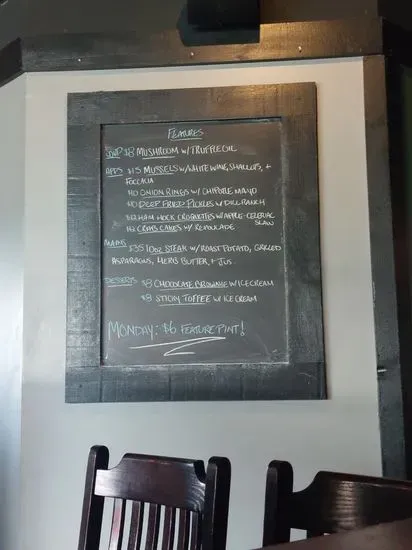 FEATURES
SOUP $8 MUSHROOM W/ TRUFFLE OIL
APPS $15 MUSSELS W/ WHITE WINE, SHALLOTS, +
FOCCACIA
$10 ONION RINGS W/ CHIPOTLE MAYO
$10 DEEP FRIED PICKLES W/ DILL RANCH
$12 HAM HOCK CROQUETTES W/ APPLE-CELERIAC
SLAW
$12 CRAB CAKES W/ REMOULADE
MAINS $35 10oz STEAK W/ ROAST POTATO, GRILLED
ASPARAGUS, HERB BUTTER, + JUS
DESSERTS $8 CHOCOLATE BROWNIE W/ ICE CREAM
$8 STICKY TOFFEE W/ ICE CREAM
MONDAY: $6 FEATURE PINT!